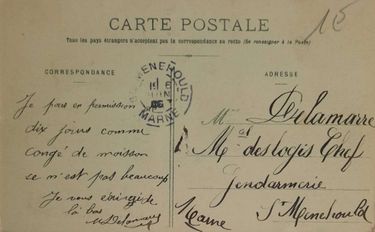 15
CARTE POSTALE
Tous les pays étrangers n'acceptent pas la correspondance au recto (Se renseigner à la Poste)
CORRESPONDANCE
ADRESSE
MENEHOULD
MARNE
Je pars en permission
dix jours comme
congé de moisson
se n'est pas beaucoup
Je vous
là bas
Delamarre
Mal des logis Chef
Gendarmerie
Marne Ste Menehould